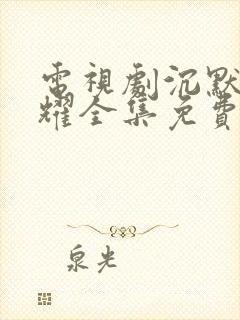 電視劇沉默
耀全集免費
泉光